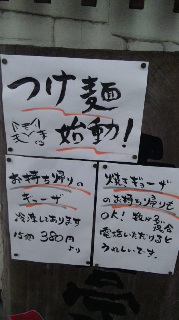 つけ麺
始動！
お持ち帰りの
ギョーザ
冷凍あります
380円
より
焼きギョーザ
のお持ち帰りも
OK！
電話いただけると
うれしいです。